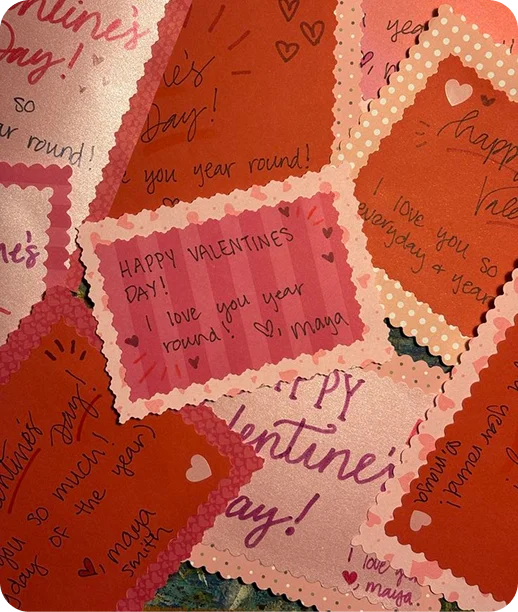 Day!
so
year round!
Day!
you year round!
yea
happy
Vale
I love you so
everyday & year
HAPPY VALENTINES
DAY!
I love you year
round! ♡, maya
Day!
you so much!
day of the year)
♡, maya
smith
PPY
entine's
ay!
I love
♥, maya
year round!
♡, maya